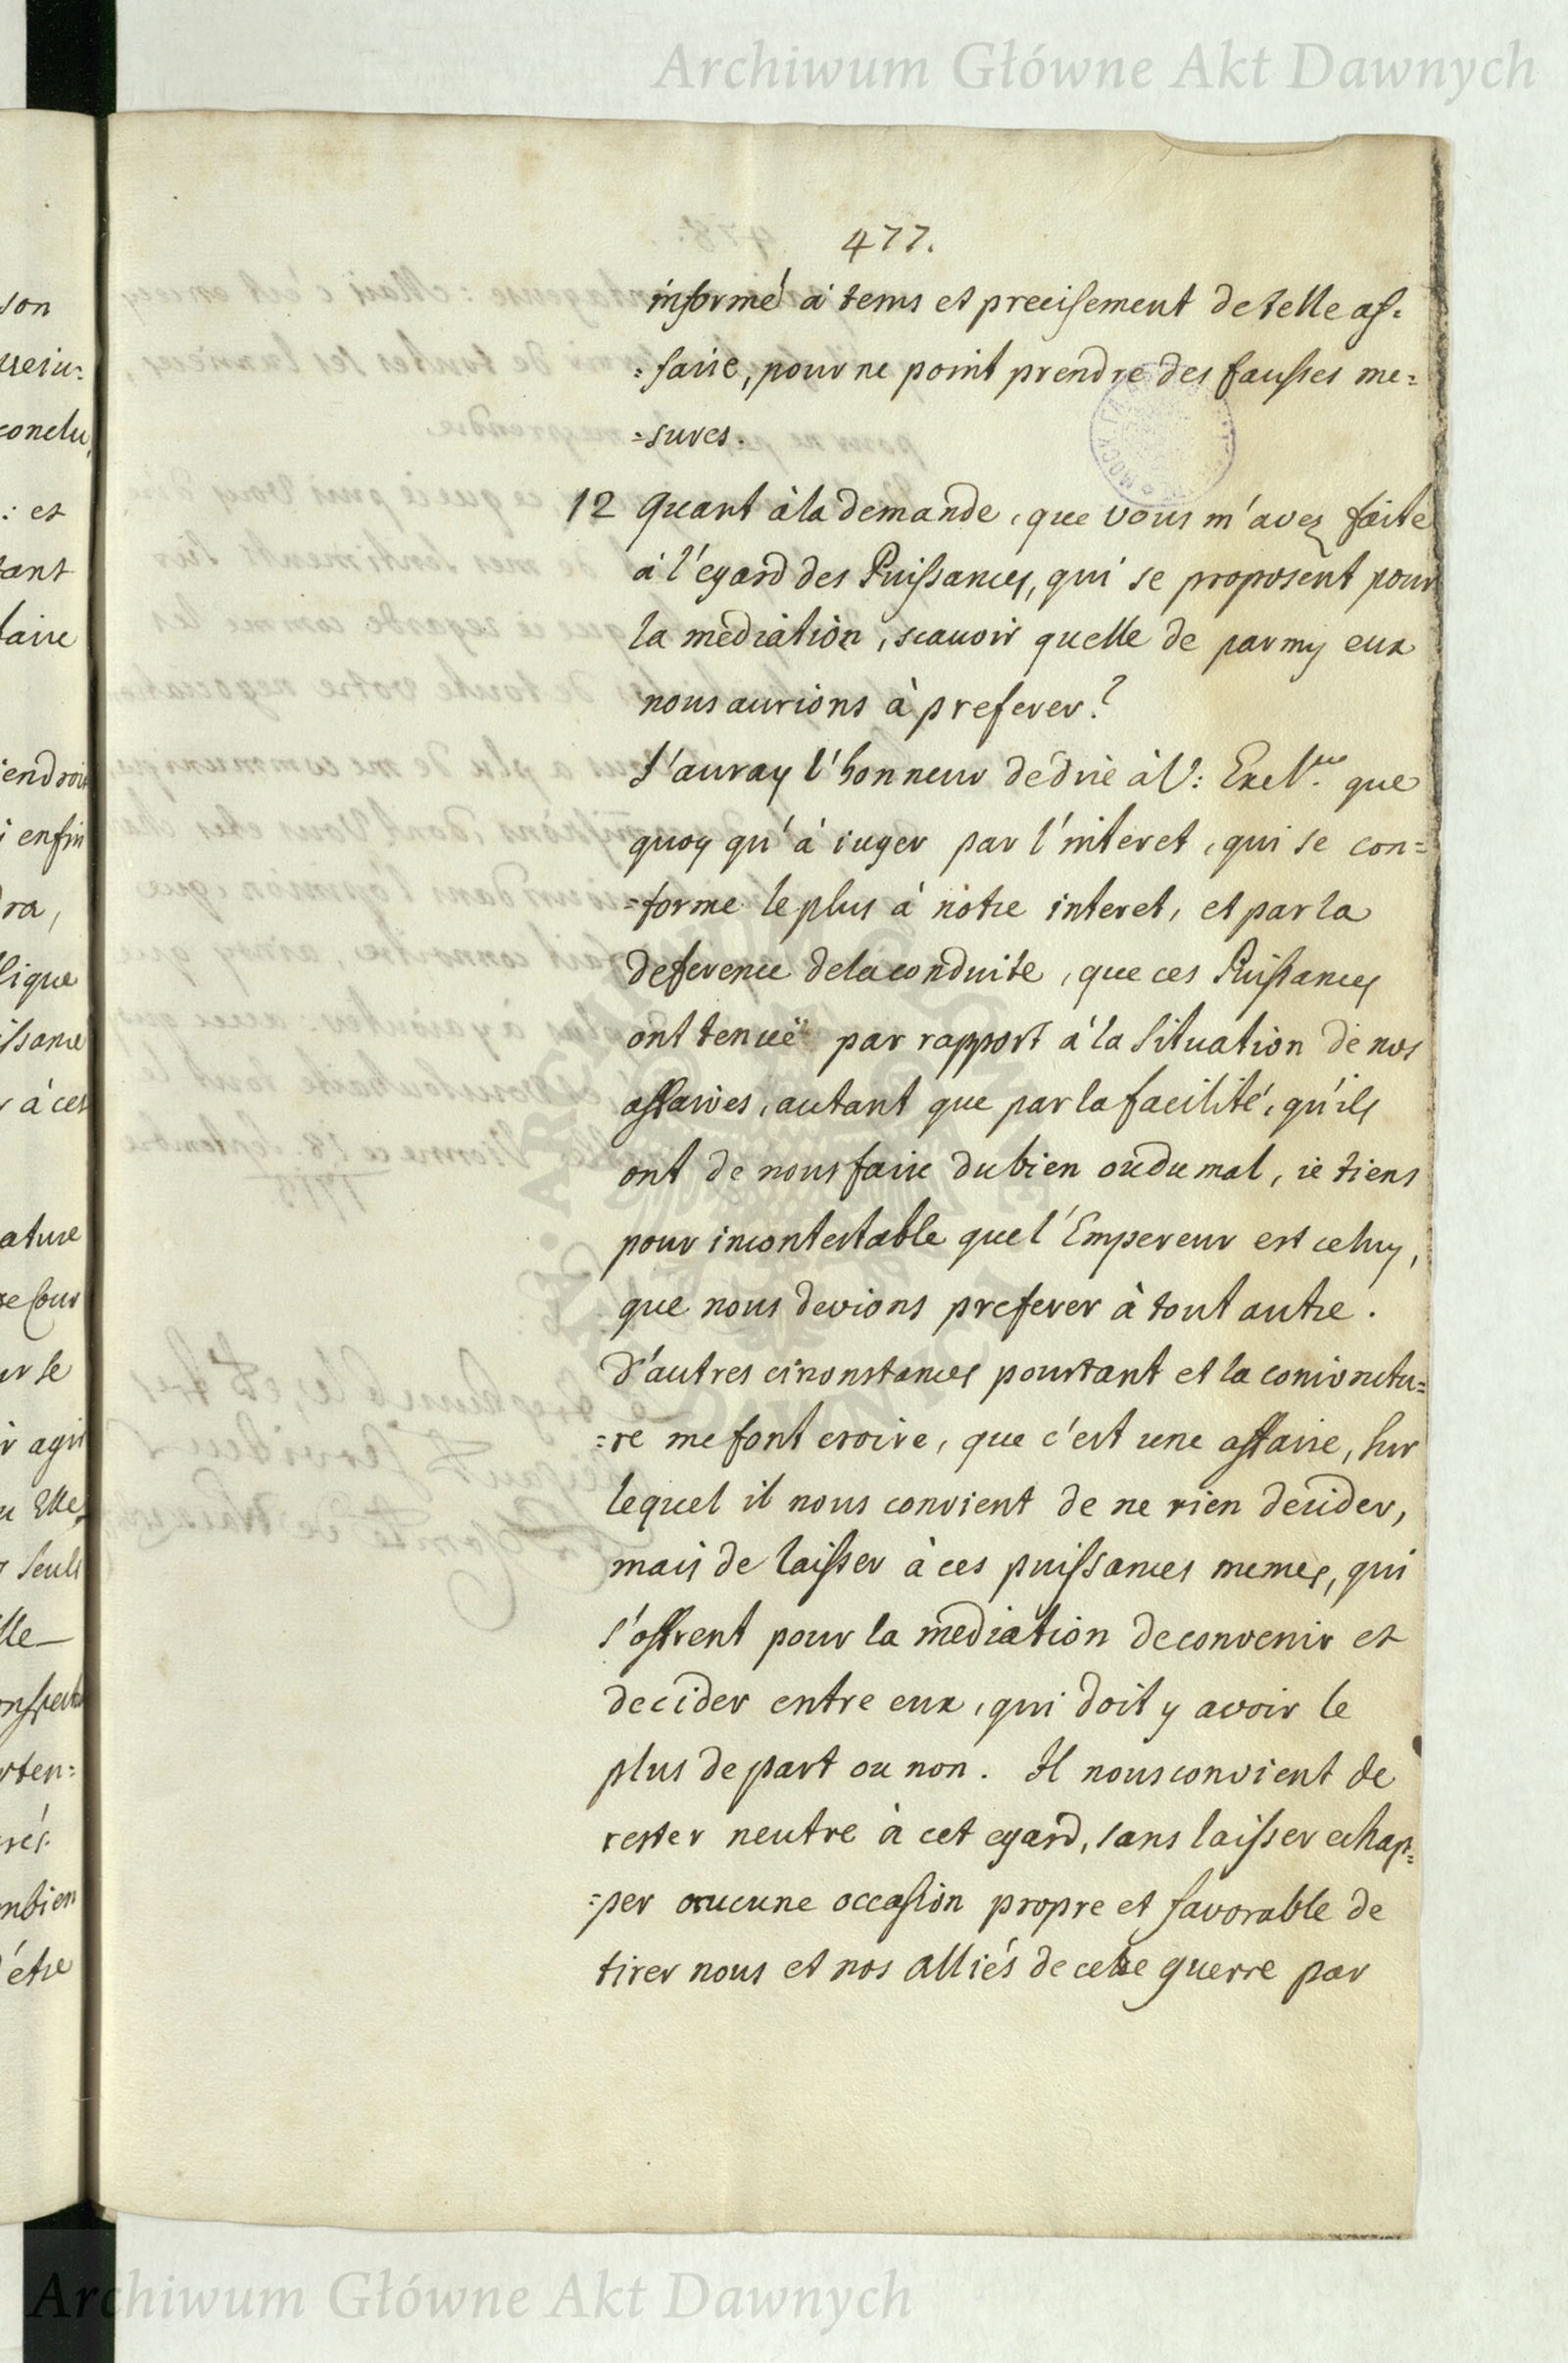 Archiwum Główne Akt Dawnych
477.
informé à tems et precisement de telle af=
=faire, pour ne point prendre des fausses me=
=sures.
12 Quant à la demande, que vous m'avez faite
à l'egard des Puissances, qui se proposent pour
la mediation, scauoir quelle de parmy eux
nous aurions à preferer?
J'auray l'honneur de dire à V: Excl.ce que
quoy qu'à iuger par l'interet, qui se con=
=forme le plus à notre interet, et par la
deference de la conduite, que ces Puissances
ont tenuë par rapport à la Situation de nos
affaires, autant que par la facilité, qu'ils
ont de nous faire du bien ou du mal, ie tiens
pour incontestable que l'Empereur est celuy,
que nous devions preferer à tout autre.
D'autres circonstances pourtant et la conionctu=
=re me font croire, que c'est une affaire, sur
lequel il nous convient de ne rien decider,
mais de laisser à ces puissances memes, qui
s'offrent pour la mediation de convenir et
decider entre eux, qui doit y avoir le
plus de part ou non. Il nous convient de
rester neutre à cet egard, sans laisser echap=
=per aucune occasion propre et favorable de
tirer nous et nos alliés de cette guerre par
Archiwum Główne Akt Dawnych